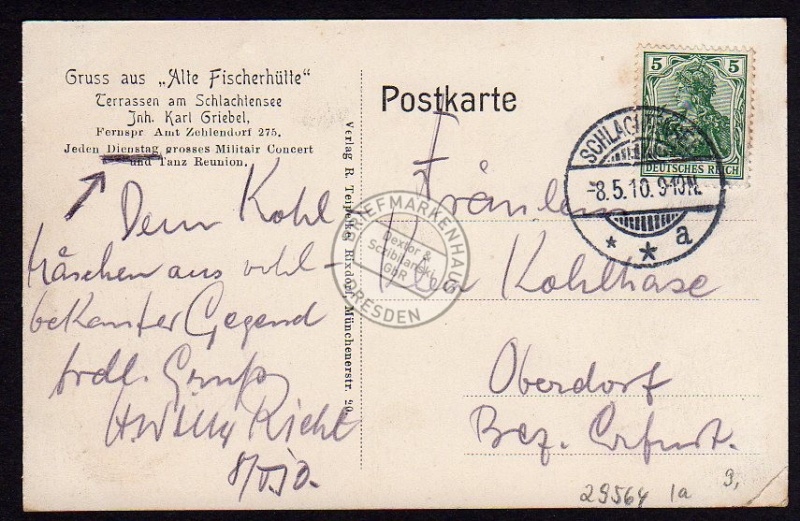 Gruss aus „Alte Fischerhütte"
Terrassen am Schlachtensee
Inh. Karl Griebel,
Fernspr. Amt Zehlendorf 275.
Jeden Dienstag grosses Militair Concert
und Tanz Reunion.
Dem Kohl
häschen aus wohl-
bekannter Gegend
frdl. Gruß
Richt
8/V.10.
Verlag R. Teipelke, Rixdorf, Münchenerstr. 20.
Postkarte
Fräulein
Kohlhase
Oberdorf
Bez. Erfurt.
5 5
DEUTSCHES REICH
SCHLACHTENSEE
-8.5.10.9-10N.
* * a
BRIEFMARKENHAUS
Dextor &
Scribilanski
GbR
DRESDEN
29564 1a 9,